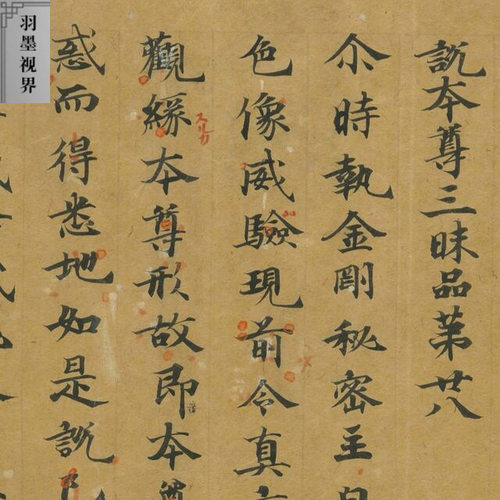 説本尊三昧品第廿八
尒時執金剛秘密主
色像威驗現前令真
觀緣本尊形故即本尊
惑而得悉地如是説
羽墨视界